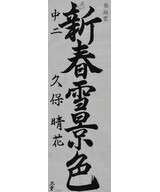 新春雪景色
中二
久保晴花